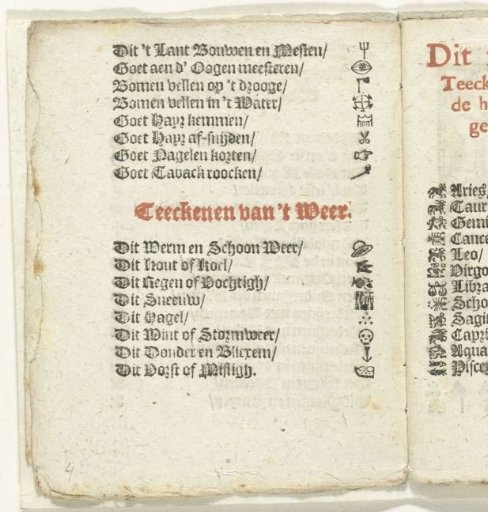 Dit 't Lant Bouwen en Mesten/
Goet aen d' Oogen meesteren/
Bomen vellen op 't drooge/
Bomen vellen in 't Water/
Goet Hayr kemmen/
Goet Hayr af-snyden/
Goet Nagelen korten/
Goet Taback roocken/
Teeckenen van 't Weer.
Dit Werm en Schoon Weer/
Dit Kout of Koel/
Dit Regen of Vochtigh/
Dit Sneeuw/
Dit Hagel/
Dit Wint of Stormweer/
Dit Donder en Blixem/
Dit Vorst of Mistigh.
4
Dit
Teeck
de h
ge
Aries/
Taur
Gemi
Cance
Leo/
Virgo
Libra
Scho
Sagit
Capri
Aqua
Pisce